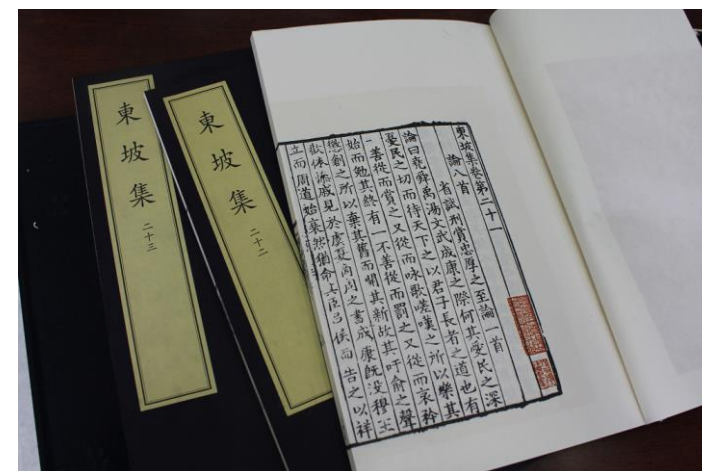 東坡集
二十三
東坡集
二十二
東坡集卷第二十一
論八首
省試刑賞忠厚之至論一首
論曰堯舜禹湯文武成康之際何其愛民之深
憂民之切而待天下之以君子長者之道也有
一善從而賞之又從而咏歌嗟嘆之所以樂其
始而勉其終有一不善從而罰之又從而哀矜
懲創之所以棄其舊而開其新故其吁俞之聲
歡休慘戚見於虞夏商周之書成康既没穆王
立而周道始衰然猶命其臣吕侯而告之以祥